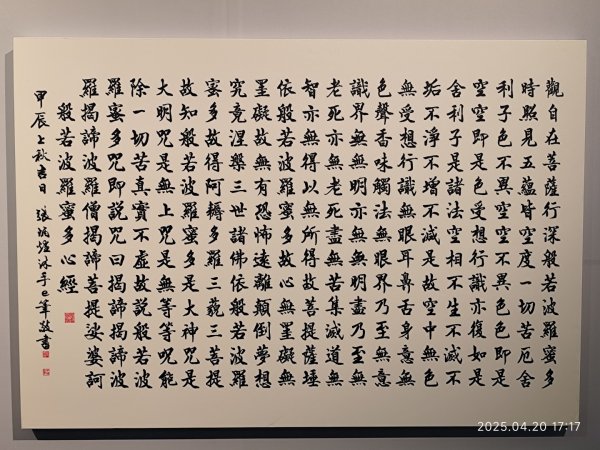 觀自在菩薩行深般若波羅蜜多
時照見五蘊皆空度一切苦厄舍
利子色不異空空不異色色即是
空空即是色受想行識亦復如是
舍利子是諸法空相不生不滅不
垢不淨不增不減是故空中無色
無受想行識無眼耳鼻舌身意無
色聲香味觸法無眼界乃至無意
識界無無明亦無無明盡乃至無
老死亦無老死盡無苦集滅道無
智亦無得以無所得故菩提薩埵
依般若波羅蜜多故心無罣礙無
罣礙故無有恐怖遠離顛倒夢想
究竟涅槃三世諸佛依般若波羅
蜜多故得阿耨多羅三藐三菩提
故知般若波羅蜜多是大神咒是
大明咒是無上咒是無等等呪能
除一切苦真實不虛故説般若波
羅蜜多咒即説咒曰揭諦揭諦波
羅揭諦波羅僧揭諦菩提娑婆訶
般若波羅蜜多心經
甲辰上秋吉日 張炳煌沐手 筆敬書
2025.04.20 17:17